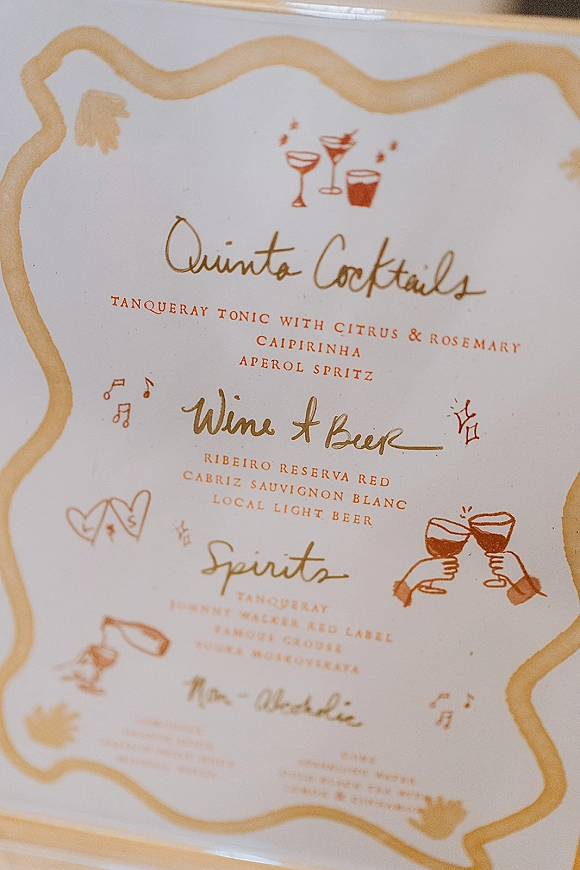 Quinta Cocktails
TANQUERAY TONIC WITH CITRUS & ROSEMARY
CAIPIRINHA
APEROL SPRITZ
Wine & Beer
RIBEIRO RESERVA RED
CABRIZ SAUVIGNON BLANC
LOCAL LIGHT BEER
L & S
Spirits
TANQUERAY
JOHNNY WALKER RED LABEL
FAMOUS GROUSE
VODKA MOSKOVSKAYA
Non-Alcoholic
SPARKLING WATER
LEMON & CINNAMON